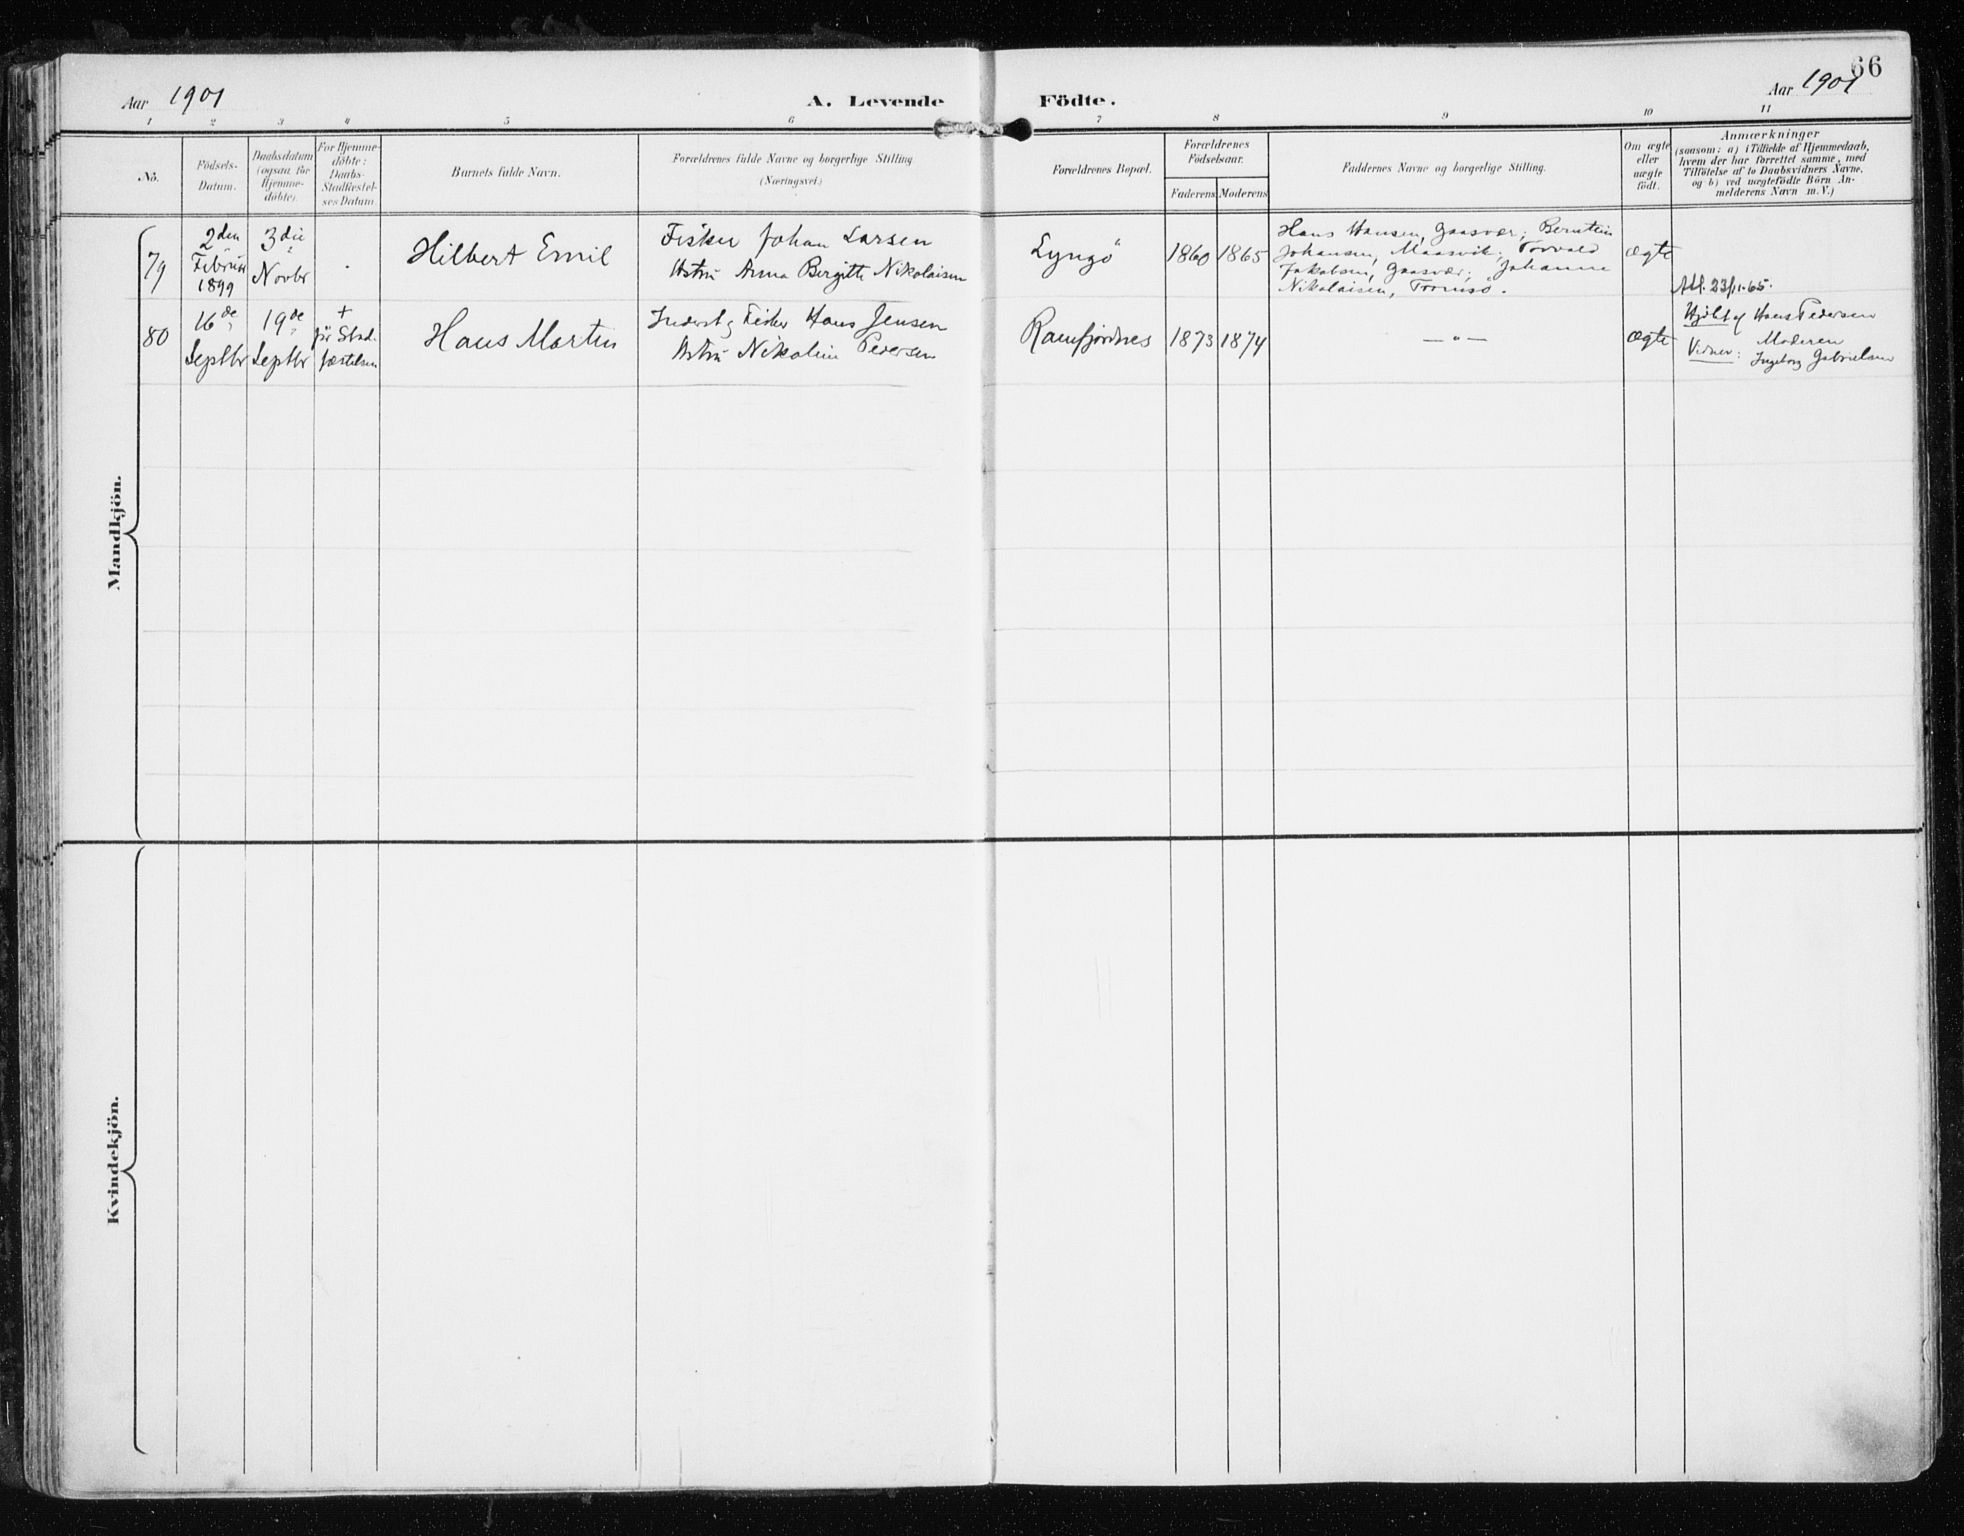 66
Aar 1901
A. Levende Födte.
Aar 1901
1 2 3 4 5 6 7 8 9 10 11
No.
Födsels-
Datum.
Daabsdatum
(ogsaa for
Hjemme-
döbte).
For Hjemme-
döbte:
Daabs-
Stadfæstel-
ses Datum.
Barnets fulde Navn.
Forældrenes fulde Navne og borgerlige Stilling
(Næringsvei.)
Forældrenes Bopæl.
Forældrenes
Födselsaar.
Faderens Moderens
Faddernes Navne og borgerlige Stilling.
Om ægte
eller
uægte
födt.
Anmærkninger
(saasom: a) i Tilfælde af Hjemmedaab,
hvem der har forrettet samme, med
Tilföielse af to Daabsvidners Navne,
og b) ved uægtefödte Börn An-
melderens Navn m. V.)
Mandkjön.
79
2den
Februar
1899
3die
Novbr
Hilbert Emil
Fisker Johan Larsen
Hstru Anna Birgitte Nikolaisen
Lyngö
1860 1865
Hans Hansen, Gaasvær; Bernstein
Johansen, Maasvik; Torvald
Jakobsen, Gaasvær; Johanne
Nikolaisen, Tromsö.
ægte
Att. 23/11-65.
80
16de
Septbr
19de
Septbr
+
för Stad-
fæstelsen
Hans Martin
Inderst og Fisker Hans Jensen
Hstru Nikoline Pedersen
Ramfjordnes
1873 1874
— " —
ægte
Hjdbt af Hans Pedersen
Vidner: Moderen
Ingeborg Gabrielsen
Kvindekjön.